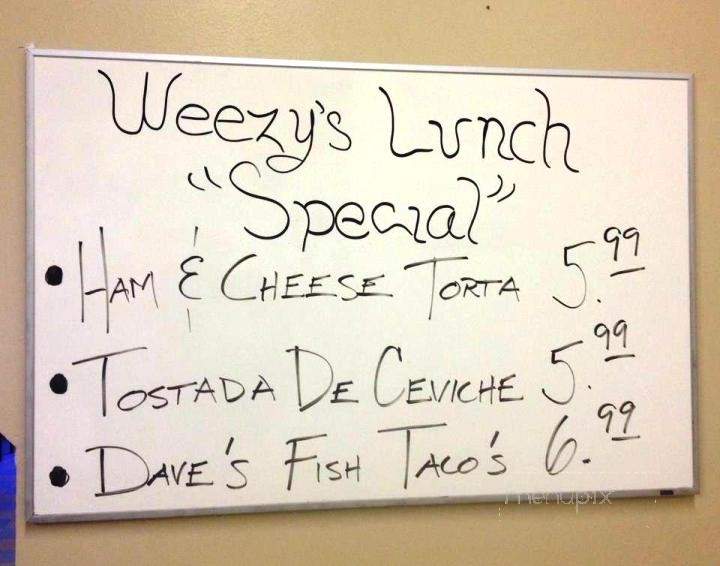 Weezy's Lunch
"Special"
• HAM & CHEESE TORTA 5.99
• TOSTADA DE CEVICHE 5.99
• DAVE'S FISH TACO'S 6.99
menupix